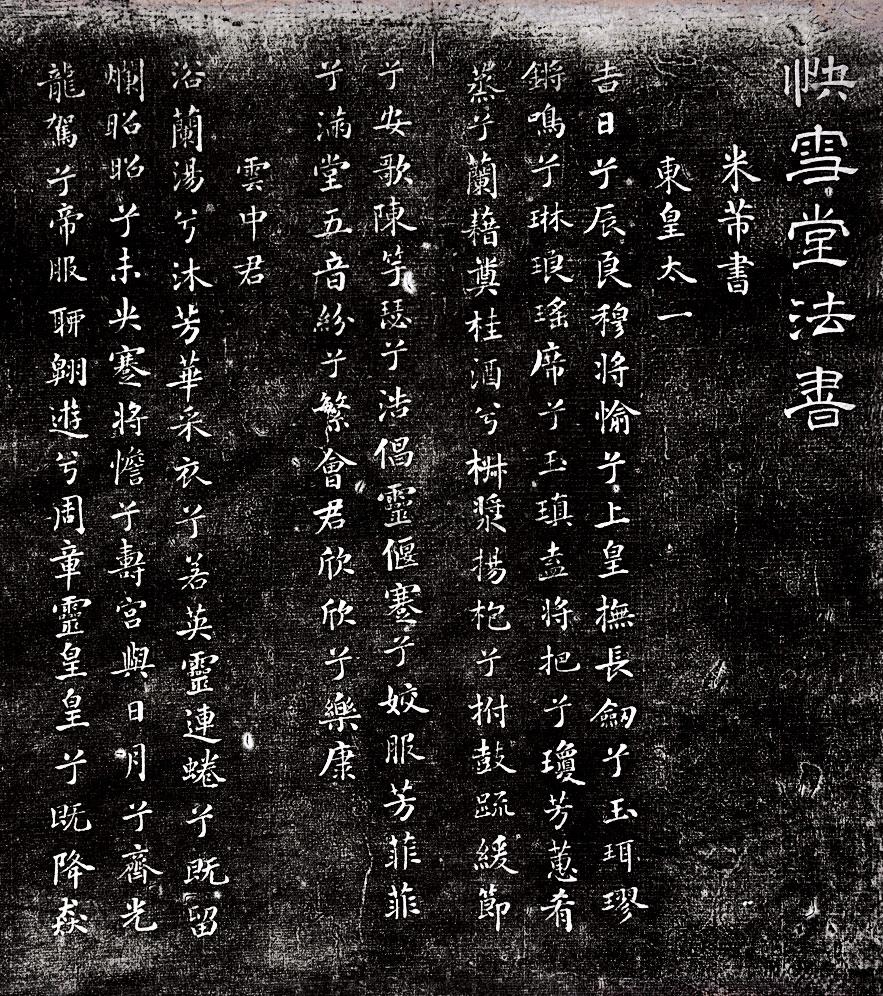 快雪堂法書
米芾書
東皇太一
吉日兮辰良穆將愉兮上皇撫長劒兮玉珥璆
鏘鳴兮琳琅瑤席兮玉瑱盍將把兮瓊芳蕙肴
蒸兮蘭藉奠桂酒兮椒漿揚枹兮拊鼓疏緩節
兮安歌陳竽瑟兮浩倡靈偃蹇兮姣服芳菲菲
兮滿堂五音紛兮繁會君欣欣兮樂康
雲中君
浴蘭湯兮沐芳華采衣兮若英靈連蜷兮既留
爛昭昭兮未央蹇將憺兮壽宮與日月兮齊光
龍駕兮帝服聊翱遊兮周章靈皇皇兮既降猋